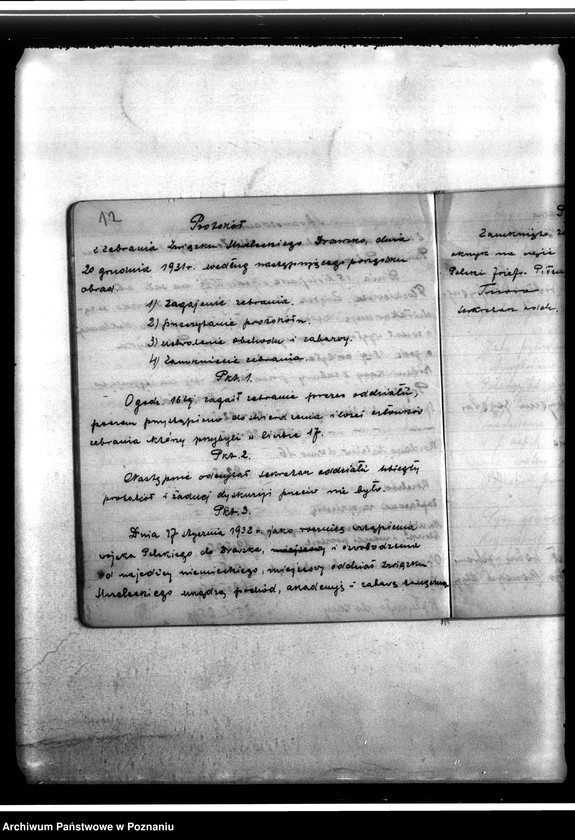 12
Protokół
z zebrania Związku Strzeleckiego Drawsko, dnia
20 grudnia 1931r. według następującego porządku
obrad.
1) Zagajenie zebrania.
2) Przeczytanie protokółu.
3) Uchwalenie obchodu i zabawy.
4) Zamknięcie zebrania.
Pkt. 1.
O godz. 16tej zagaił zebranie prezes oddziału,
poczem przystąpiono do stwierdzenia ilości członków
zebrania którzy przybyli w liczbie 17.
Pkt. 2.
Następnie odczytał sekretarz oddziału ubiegły
protokół i żadnej dyskusji przeciw nie było.
Pkt. 3.
Dnia 17 stycznia 1932r. jako rocznicę wstąpienia
wojska Polskiego do Drawska, i oswobodzenia
od najeźdźcy niemieckiego, miejscowy oddział Związku
Strzeleckiego urządzi pochód, akademję i zabawę
P
Zamknięto
okrzyk na cześć
Polski Józefa Piłsu
sekretarz
Archiwum Państwowe w Poznaniu